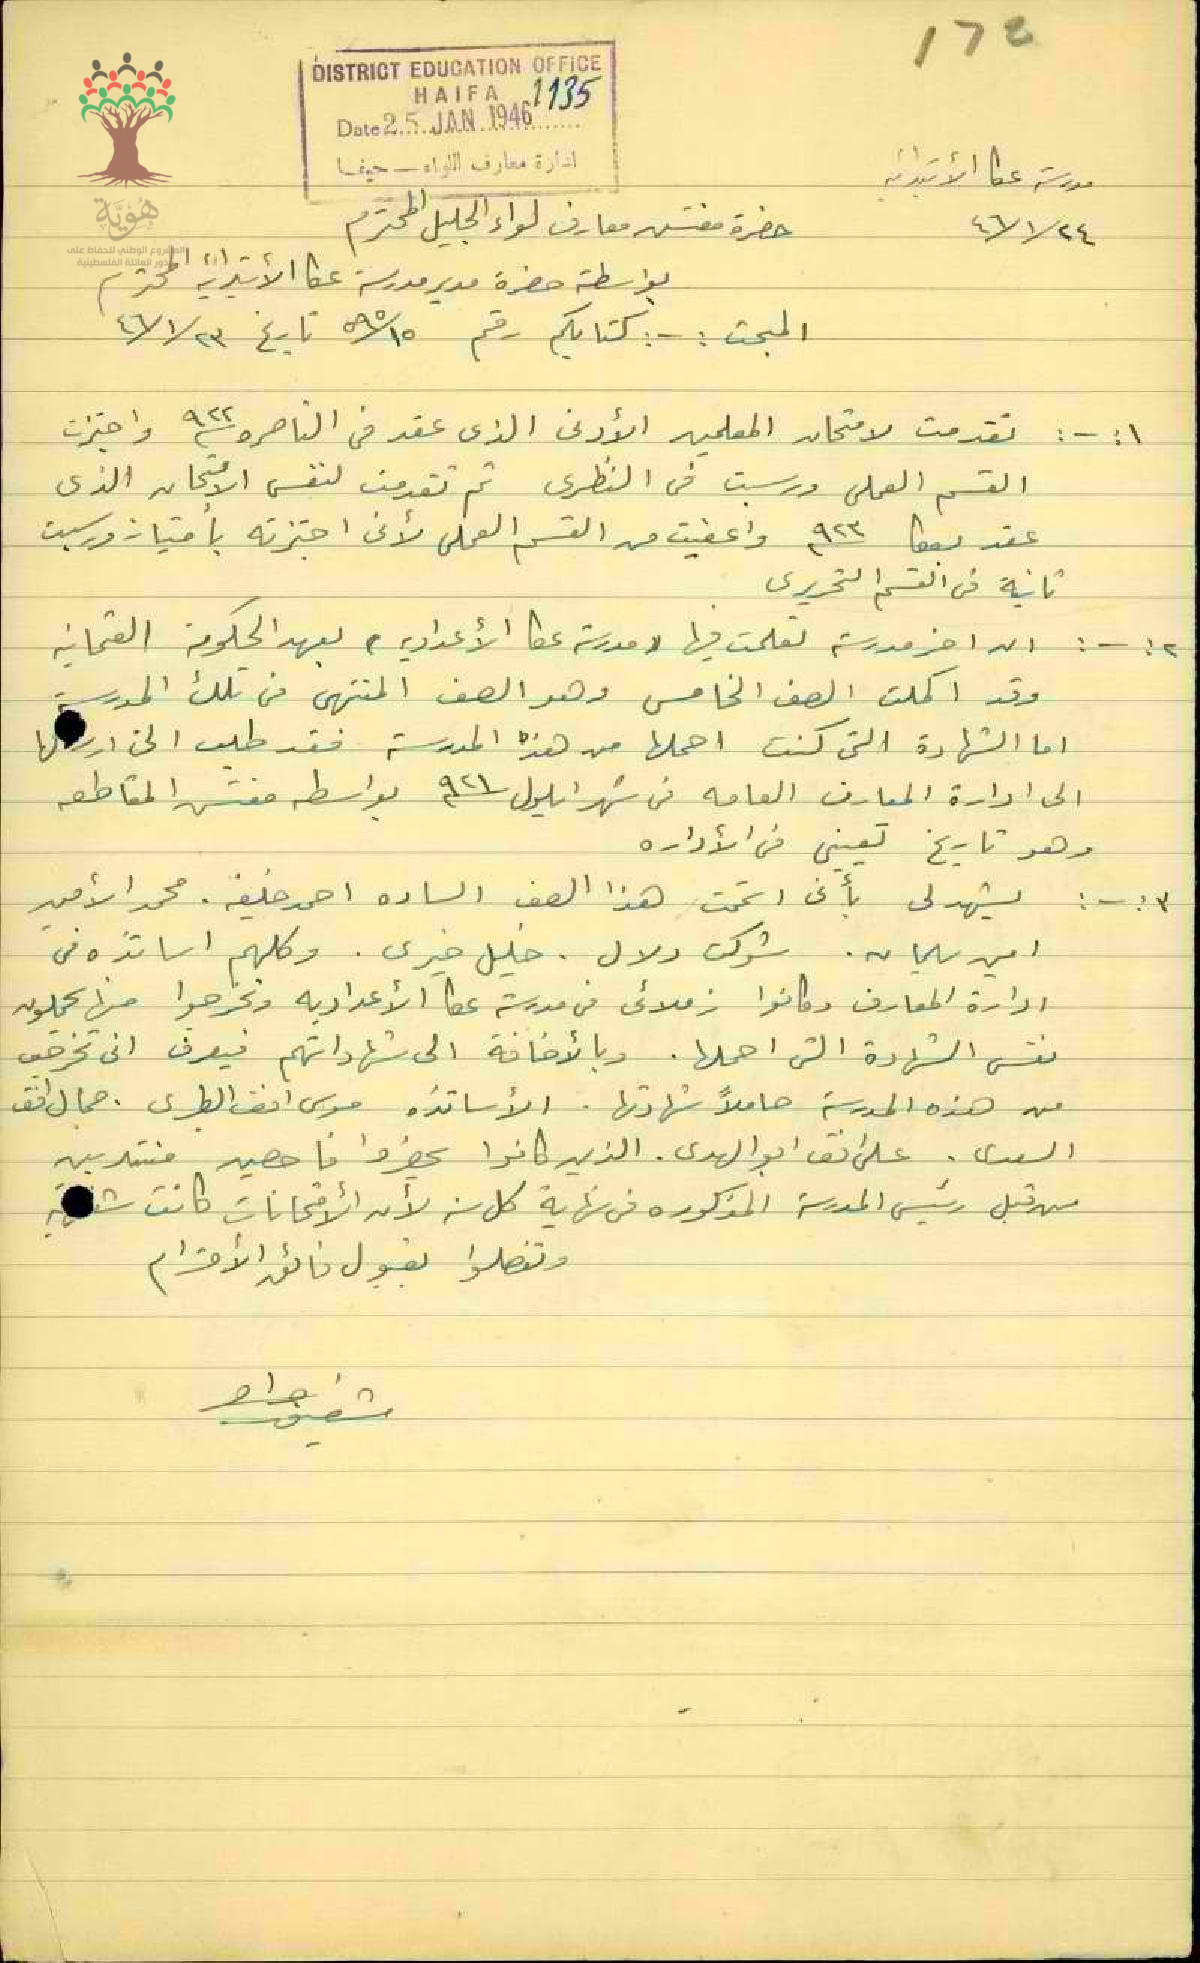 ١٧٤
DISTRICT EDUCATION OFFICE
HAIFA 1135
Date 25 JAN 1946
ادارة معارف اللواء — حيفا
هُوِيَّة
المشروع الوطني للحفاظ على
جذور العائلة الفلسطينية
مدرسة عكا الأبتدائيه
٤٦/١/٢٤
حضرة مفتش معارف لواء الجليل المحترم
بواسطة حضرة مدير مدرسة عكا الأبتدائيه المحترم
المبحث :-: كتابكم رقم ٥٩٥/١٥ تاريخ ٤٦/١/٢٣
١:-: تقدمت لامتحان المعلمين الأدنى الذى عقد فى الناصره ٩٢٢ واجتزت
القسم العملى ورسبت فى النظرى ثم تقدمت لنفس الامتحان الذى
عقد بعكا ٩٢٣ واعفيت من القسم العملى لأنى اجتزته بأمتياز ورسبت
ثانية فى القسم التحريرى
٢:-: ان اخر مدرسة تعلمت فيها « مدرسة عكا الأعداديه » بعهد الحكومة العثمانيه
وقد اكملت الصف الخامس وهو الصف المنتهى فى تلك المدرسة
اما الشهادة التى كنت احملها من هذه المدرسة فقد طلب الىّ ارسالها
الى ادارة المعارف العامه فى شهر ايلول ٩٢١ بواسطه مفتش المقاطعه
وهو تاريخ تعيينى فى الأداره
٣:-: يشهد لى بأنى اتممت هذا الصف الساده احمد خليفه . محمد الأمين
امين سليمان . شوكت دلال . خليل خيرى . وكلهم اساتذه فى
ادارة المعارف وكانوا زملائى فى مدرسة عكا الأعداديه وتخرجوا منها يحملون
نفس الشهادة التى احملها . وبالأضافة الى شهاداتهم فيعرف انى تخرجت
من هذه المدرسة حاملاً شهادتها . الأساتذه موسى افندى الطبرى . جمال افندى
السعدى . على افندى ابو الهدى . الذين كانوا يحضروا فاحصين منتدبين
من قبل رئيس المدرسة المذكوره فى نهاية كل سنه لأن الأمتحانات كانت شفهية
وتفضلوا بقبول فائق الأحترام
شفيق